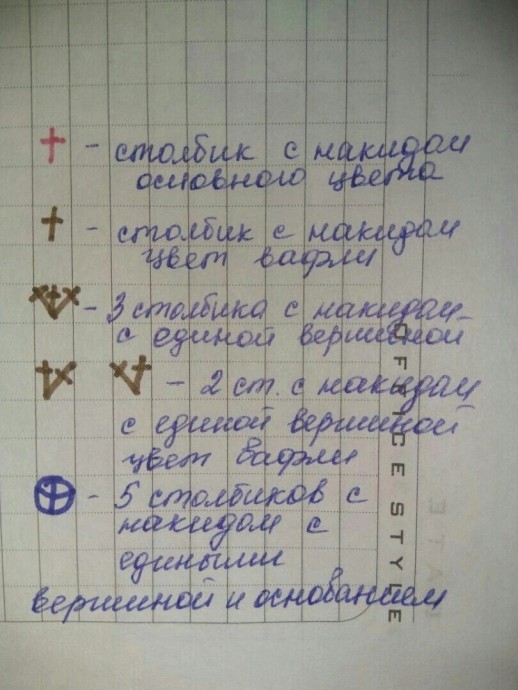 † - столбик с накидом
основного цвета
† - столбик с накидом
цвет вафли
- 3 столбика с накидом
с единой вершиной
- 2 ст. с накидом
с единой вершиной
цвет вафли
- 5 столбиков с
накидом с
едиными
вершиной и основанием
OFFICE STYLE